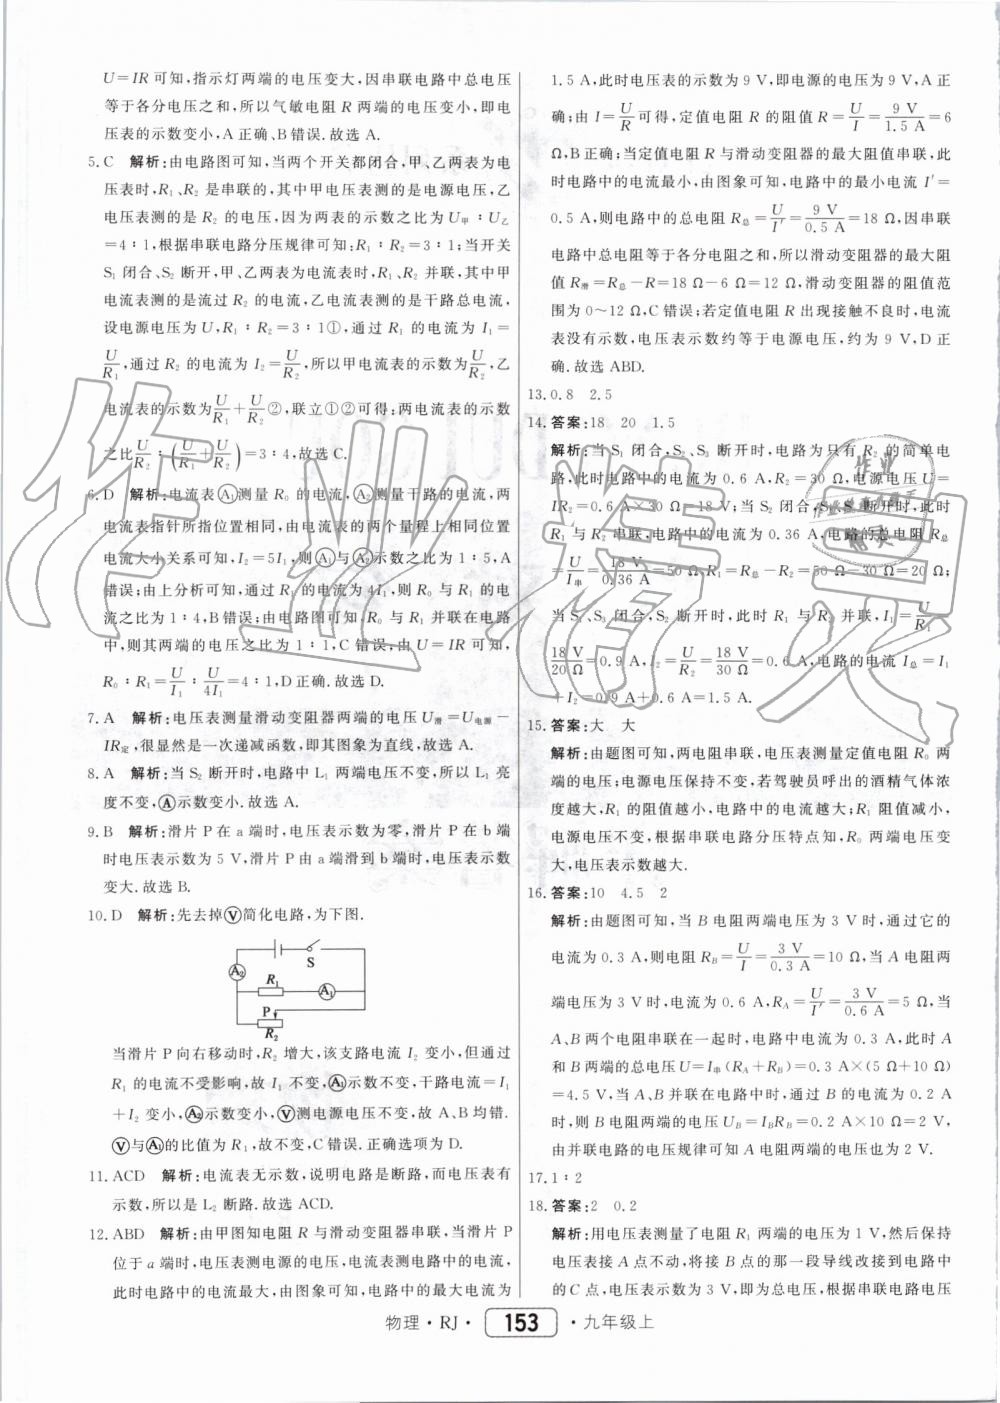 U=IR 可知,指示灯两端的电压变大,因串联电路中总电压
等于各分电压之和,所以气敏电阻 R 两端的电压变小,即电
压表的示数变小,A 正确、B 错误.故选 A.
5. C 解析:由电路图可知,当两个开关都闭合,甲、乙两表为电
压表时,R₁、R₂ 是串联的,其中甲电压表测的是电源电压,乙
电压表测的是 R₂ 的电压,因为两表的示数之比为 U甲∶U乙
=4∶1,根据串联电路分压规律可知:R₁∶R₂=3∶1;当开关
S₁ 闭合、S₂ 断开,甲、乙两表为电流表时,R₁、R₂ 并联,其中甲
电流表测的是流过 R₂ 的电流,乙电流表测的是干路总电流,
设电源电压为 U,R₁∶R₂=3∶1①,通过 R₁ 的电流为 I₁=
U/R₁,通过 R₂ 的电流为 I₂=U/R₂,所以甲电流表的示数为 U/R₂,乙
电流表的示数为 U/R₁+U/R₂②,联立①②可得:两电流表的示数
之比 U/R₂∶(U/R₂+U/R₁)=3∶4,故选 C.
6. D 解析:电流表Ⓐ₁测量 R₀ 的电流,Ⓐ₂测量干路的电流,两
电流表指针所指位置相同,由电流表的两个量程上相同位置
电流大小关系可知,I₂=5I₁,则Ⓐ₁与Ⓐ₂示数之比为 1∶5,A
错误;由上分析可知,通过 R₁ 的电流为 4I₁,则 R₀ 与 R₁ 的电
流之比为 1∶4,B 错误;由电路图可知,R₀ 与 R₁ 并联在电路
中,则其两端的电压之比为 1∶1,C 错误;由 U=IR 可知,
R₀∶R₁=U/I₁∶U/4I₁=4∶1,D 正确.故选 D.
7. A 解析:电压表测量滑动变阻器两端的电压 U滑=U电源-
IR定,很显然是一次递减函数,即其图象为直线,故选 A.
8. A 解析:当 S₂ 断开时,电路中 L₁ 两端电压不变,所以 L₁ 亮
度不变,Ⓐ示数变小.故选 A.
9. B 解析:滑片 P 在 a 端时,电压表示数为零,滑片 P 在 b 端
时电压表示数为 5 V,滑片 P 由 a 端滑到 b 端时,电压表示数
变大.故选 B.
10. D 解析:先去掉Ⓥ简化电路,为下图.
S
A₂
R₁
A₁
P
R₂
当滑片 P 向右移动时,R₂ 增大,该支路电流 I₂ 变小,但通过
R₁ 的电流不受影响,故 I₁ 不变,Ⓐ₁示数不变,干路电流=I₁
+I₂ 变小,Ⓐ₂示数变小,Ⓥ测电源电压不变,故 A、B 均错.
Ⓥ与Ⓐ₁的比值为 R₁,故不变,C 错误.正确选项为 D.
11. ACD 解析:电流表无示数,说明电路是断路,而电压表有
示数,所以是 L₂ 断路.故选 ACD.
12. ABD 解析:由甲图知电阻 R 与滑动变阻器串联,当滑片 P
位于 a 端时,电压表测电源的电压,电流表测电路中的电流,
此时电路中的电流最大,由图象可知,电路中的最大电流为
1.5 A,此时电压表的示数为 9 V,即电源的电压为 9 V,A 正
确;由 I=U/R 可得,定值电阻 R 的阻值 R=U/I=9 V/1.5 A=6
Ω,B 正确;当定值电阻 R 与滑动变阻器的最大阻值串联,此
时电路中的电流最小,由图象可知,电路中的最小电流 I′=
0.5 A,则电路中的总电阻 R总=U/I′=9 V/0.5 A=18 Ω,因串联
电路中总电阻等于各分电阻之和,所以滑动变阻器的最大阻
值 R滑=R总-R=18 Ω-6 Ω=12 Ω,滑动变阻器的阻值范
围为 0～12 Ω,C 错误;若定值电阻 R 出现接触不良时,电流
表没有示数,电压表示数约等于电源电压,约为 9 V,D 正
确.故选 ABD.
13. 0.8 2.5
14. 答案:18 20 1.5
解析:当 S₁ 闭合,S₂、S₃ 断开时,电路为只有 R₂ 的简单电
路,此时电路中的电流为 0.6 A,R₂=30 Ω,电源电压 U=
IR₂=0.6 A×30 Ω=18 V;当 S₂ 闭合,S₁、S₃ 断开时,此时
R₁ 与 R₂ 串联,电路中的电流为 0.36 A,电路的总电阻 R总
=U/I串=18 V/0.36 A=50 Ω,R₁=R总-R₂=50 Ω-30 Ω=20 Ω;
当 S₁、S₃ 闭合,S₂ 断开时,此时 R₁ 与 R₂ 并联,I₁=U/R₁=
18 V/20 Ω=0.9 A,I₂=U/R₂=18 V/30 Ω=0.6 A,电路的电流 I总=I₁
+I₂=0.9 A+0.6 A=1.5 A.
15. 答案:大 大
解析:由题图可知,两电阻串联,电压表测量定值电阻 R₀ 两
端的电压;电源电压保持不变,若驾驶员呼出的酒精气体浓
度越大,R₁ 的阻值越小,电路中的电流越大;R₁ 阻值减小,
电源电压不变,根据串联电路分压特点知,R₀ 两端电压变
大,电压表示数越大.
16. 答案:10 4.5 2
解析:由题图可知,当 B 电阻两端电压为 3 V 时,通过它的
电流为 0.3 A,则电阻 R_B=U/I=3 V/0.3 A=10 Ω,当 A 电阻两
端电压为 3 V 时,电流为 0.6 A,R_A=U/I′=3 V/0.6 A=5 Ω,当
A、B 两个电阻串联在一起时,电路中电流为 0.3 A,此时 A
和 B 两端的总电压 U=I串(R_A+R_B)=0.3 A×(5 Ω+10 Ω)
=4.5 V,当 A、B 并联在电路中时,通过 B 的电流为 0.2 A
时,B 电阻两端的电压 U_B=I_BR_B=0.2 A×10 Ω=2 V,
由并联电路的电压规律可知 A 电阻两端的电压也为 2 V.
17. 1∶2
18. 答案:2 0.2
解析:用电压表测量了电阻 R₁ 两端的电压为 1 V,然后保持
电压表接 A 点不动,将接 B 点的那一段导线改接到电路中
的 C 点,电压表示数变为 3 V,即为总电压,根据串联电路电压
物理·RJ· 153 ·九年级上
作业精灵
作业
精灵